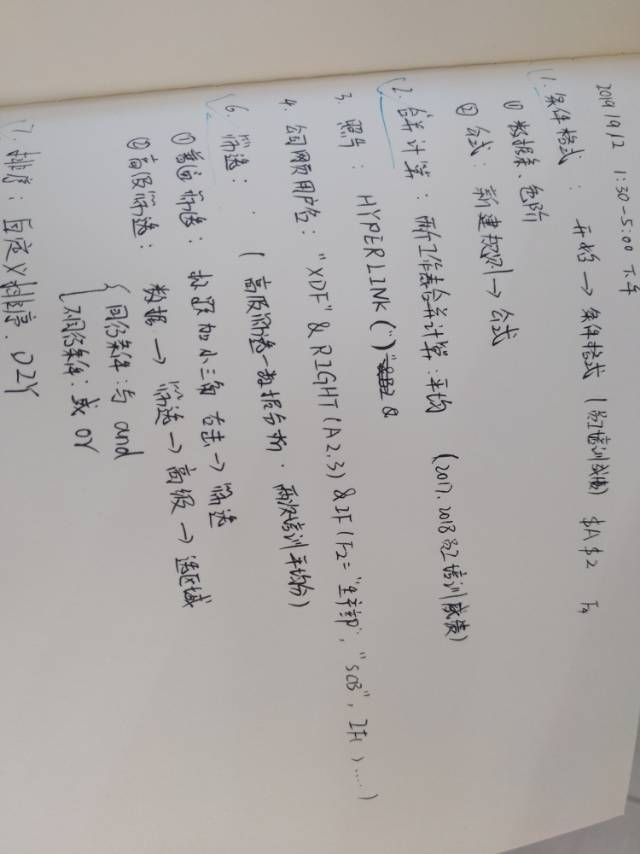 2019/9/2 1:30-5:00 下午
1. 条件格式： 开始 → 条件格式 (员工培训成绩) $A$2 F4
① 数据条、色阶
② 公式： 新建规则 → 公式
2. 合并计算： 两个工作表合并计算：平均 (2017、2018员工培训成绩)
3. 照片： HYPERLINK (" ") &
4. 公司网页用户名： "XDF" & RIGHT (A2,3) & IF (F2= "生产部", "SCB", IF( )……)
6. 筛选： (高级筛选—数据分析. 两次培训平均分)
① 普通筛选： 标题加小三角 右击 → 筛选
② 高级筛选： 数据 → 筛选 → 高级 → 选区域
同行条件：与 and
不同行条件：或 or
7. 排序：自定义排序.